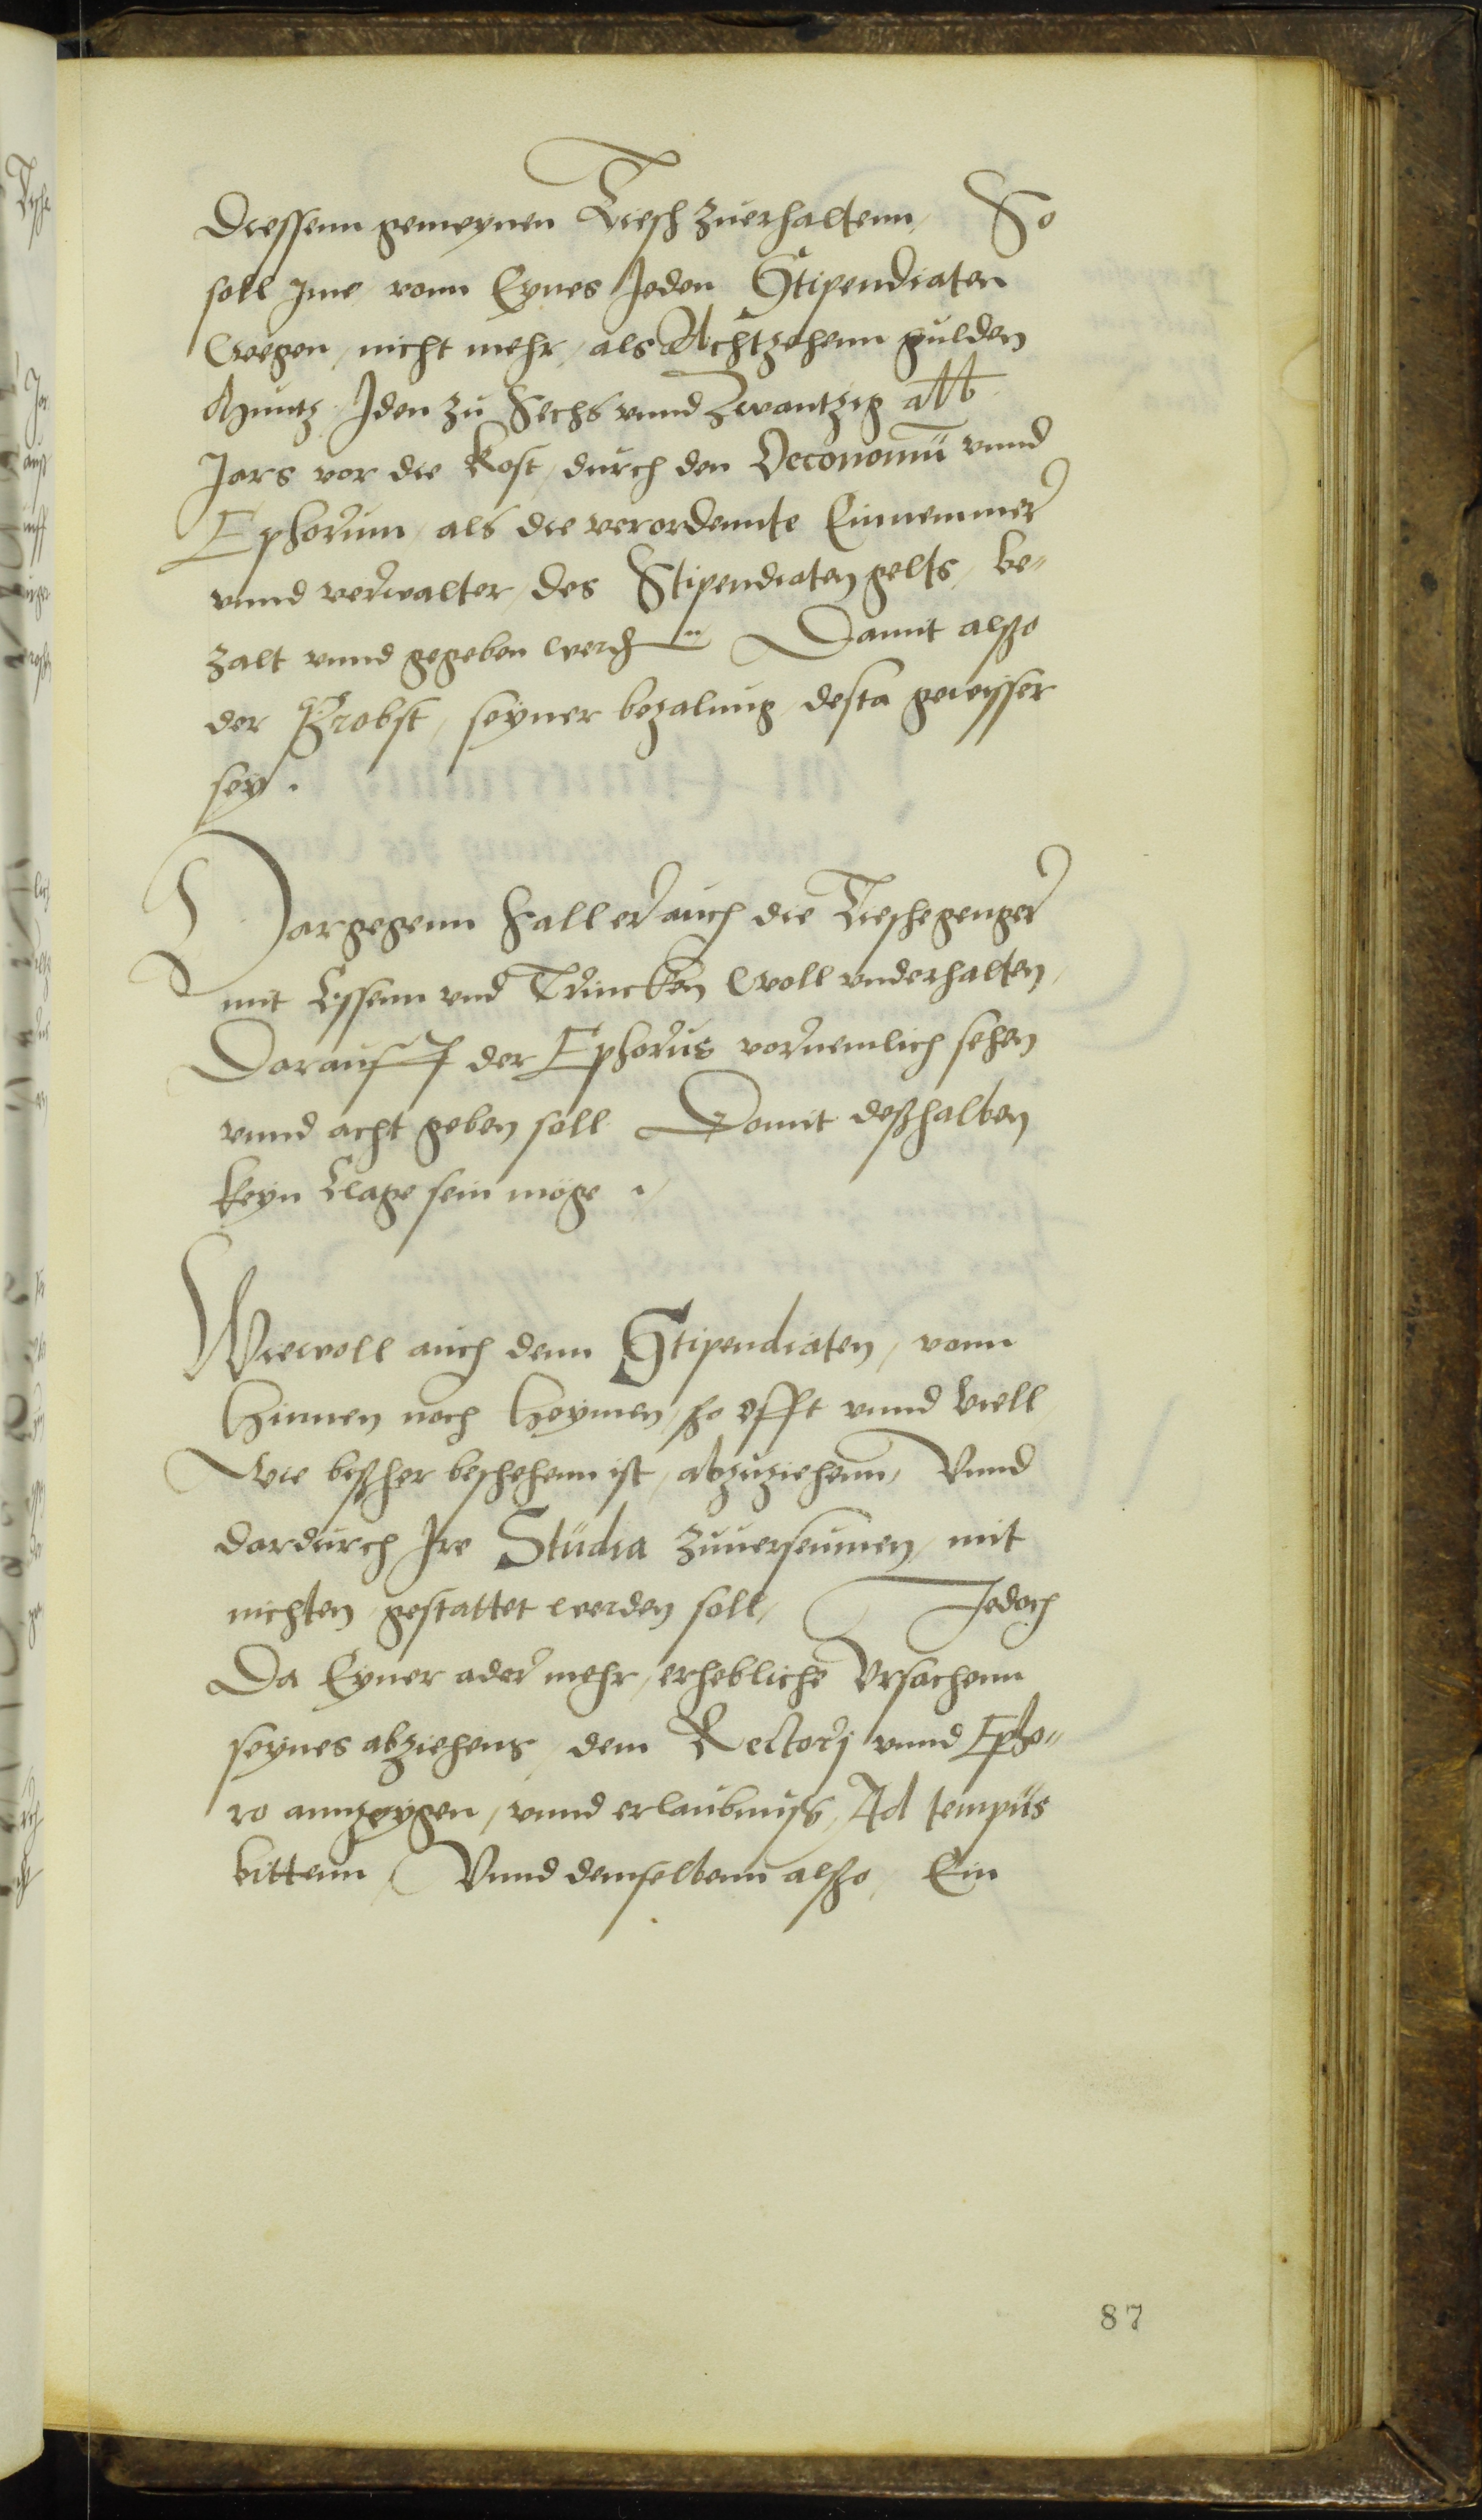 diessenn gemeynen Tiesch zuerhaltenn, So
soll Ime, vonn Eynes Jeden Stipendiaten
wegen, nicht mehr, als Achtzehenn gulden
Muntz, Jden zu Sechs vnnd Zwantzig alb
Jars vor die Kost, durch den Oeconomū vnnd
Ephorum, als die verordennte Einnemmer
vnnd verwalter, des Stipendiaten gelts, be„
zalt vnnd gegeben werdn Damit alßo
der Probst, seyner bezalung, desta gewysser
sey.
Dargegenn Sall er auch die Tieschegenger
mit Essenn vnd Trincken woll vnderhalten,
Darauff der Ephorus vornemlich sehen
vnnd acht geben soll Damit deßhalben
keyn Clage sein möge.
Wiewoll auch denn Stipendiaten, vonn
Hinnen noch Heymen, so offt vnnd viell,
wie bißher beschehenn ist, abzuziehenn, Vnnd
dardurch Jre Studia zuuerseumen, mit
nichten, gestattet werden soll, Jedoch
Da Eyner ader mehr, erhebliche Vrsachenn
seynes abziehens, dem Rectorj vnnd Epho„
ro annzeygen, vnnd erlaubnuss, Ad tempus
bittenn, Vnnd demselbenn alßo, Ein
87